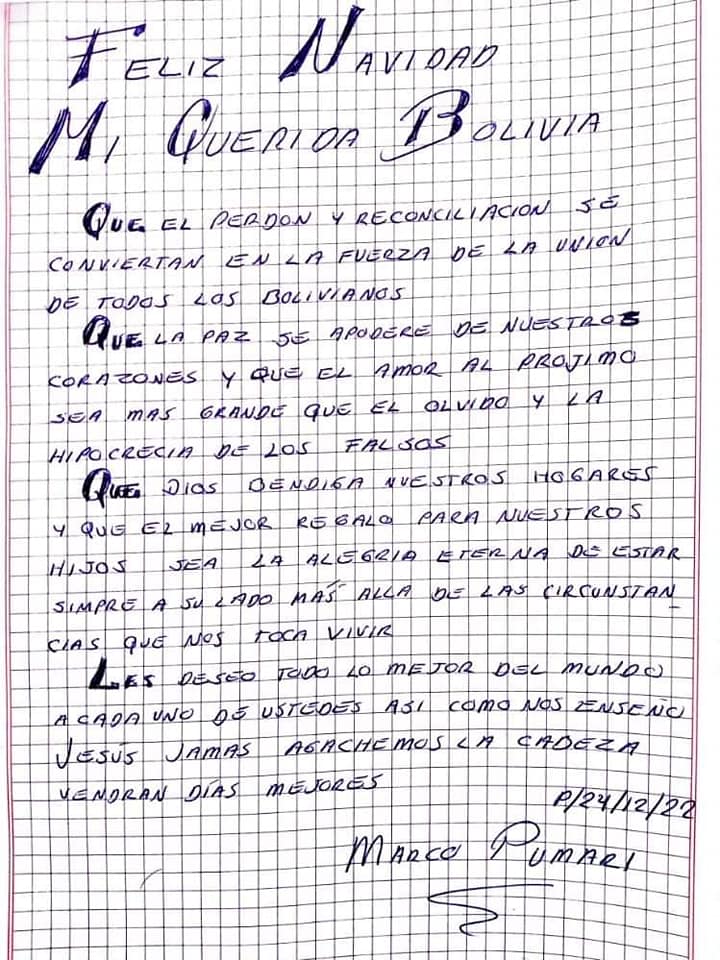 FELIZ NAVIDAD
MI QUERIDA BOLIVIA
QUE EL PERDON Y RECONCILIACION SE
CONVIERTAN EN LA FUERZA DE LA UNION
DE TODOS LOS BOLIVIANOS
QUE LA PAZ SE APODERE DE NUESTROS
CORAZONES Y QUE EL AMOR AL PROJIMO
SEA MAS GRANDE QUE EL OLVIDO Y LA
HIPOCRECIA DE LOS FALSOS
QUE DIOS BENDIGA NUESTROS HOGARES
Y QUE EL MEJOR REGALO PARA NUESTROS
HIJOS SEA LA ALEGRIA ETERNA DE ESTAR
SIMPRE A SU LADO MÁS ALLA DE LAS CIRCUNSTAN_
CIAS QUE NOS TOCA VIVIR
LES DESEO TODO LO MEJOR DEL MUNDO
A CADA UNO DE USTEDES ASI COMO NOS ENSEÑO
JESÚS JAMAS AGACHEMOS LA CABEZA
VENDRAN DÍAS MEJORES
P/24/12/22
MARCO PUMARI